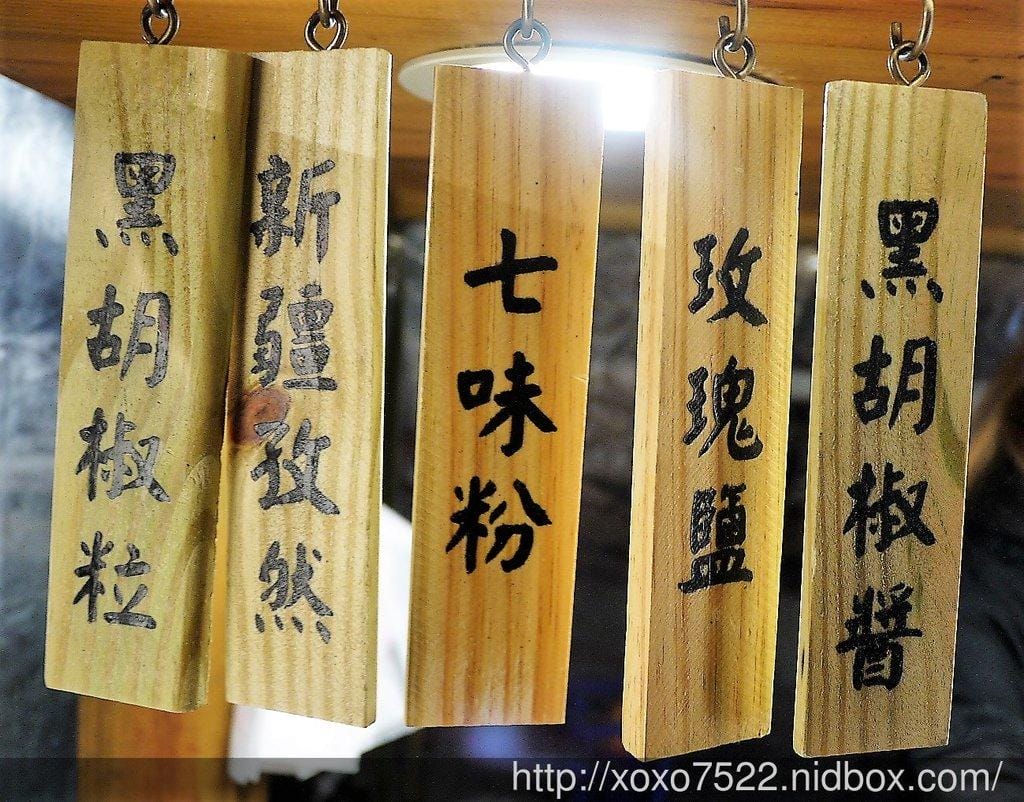 黑胡椒粒
新疆孜然
七味粉
玫瑰鹽
黑胡椒醬
http://xoxo7522.nidbox.com/